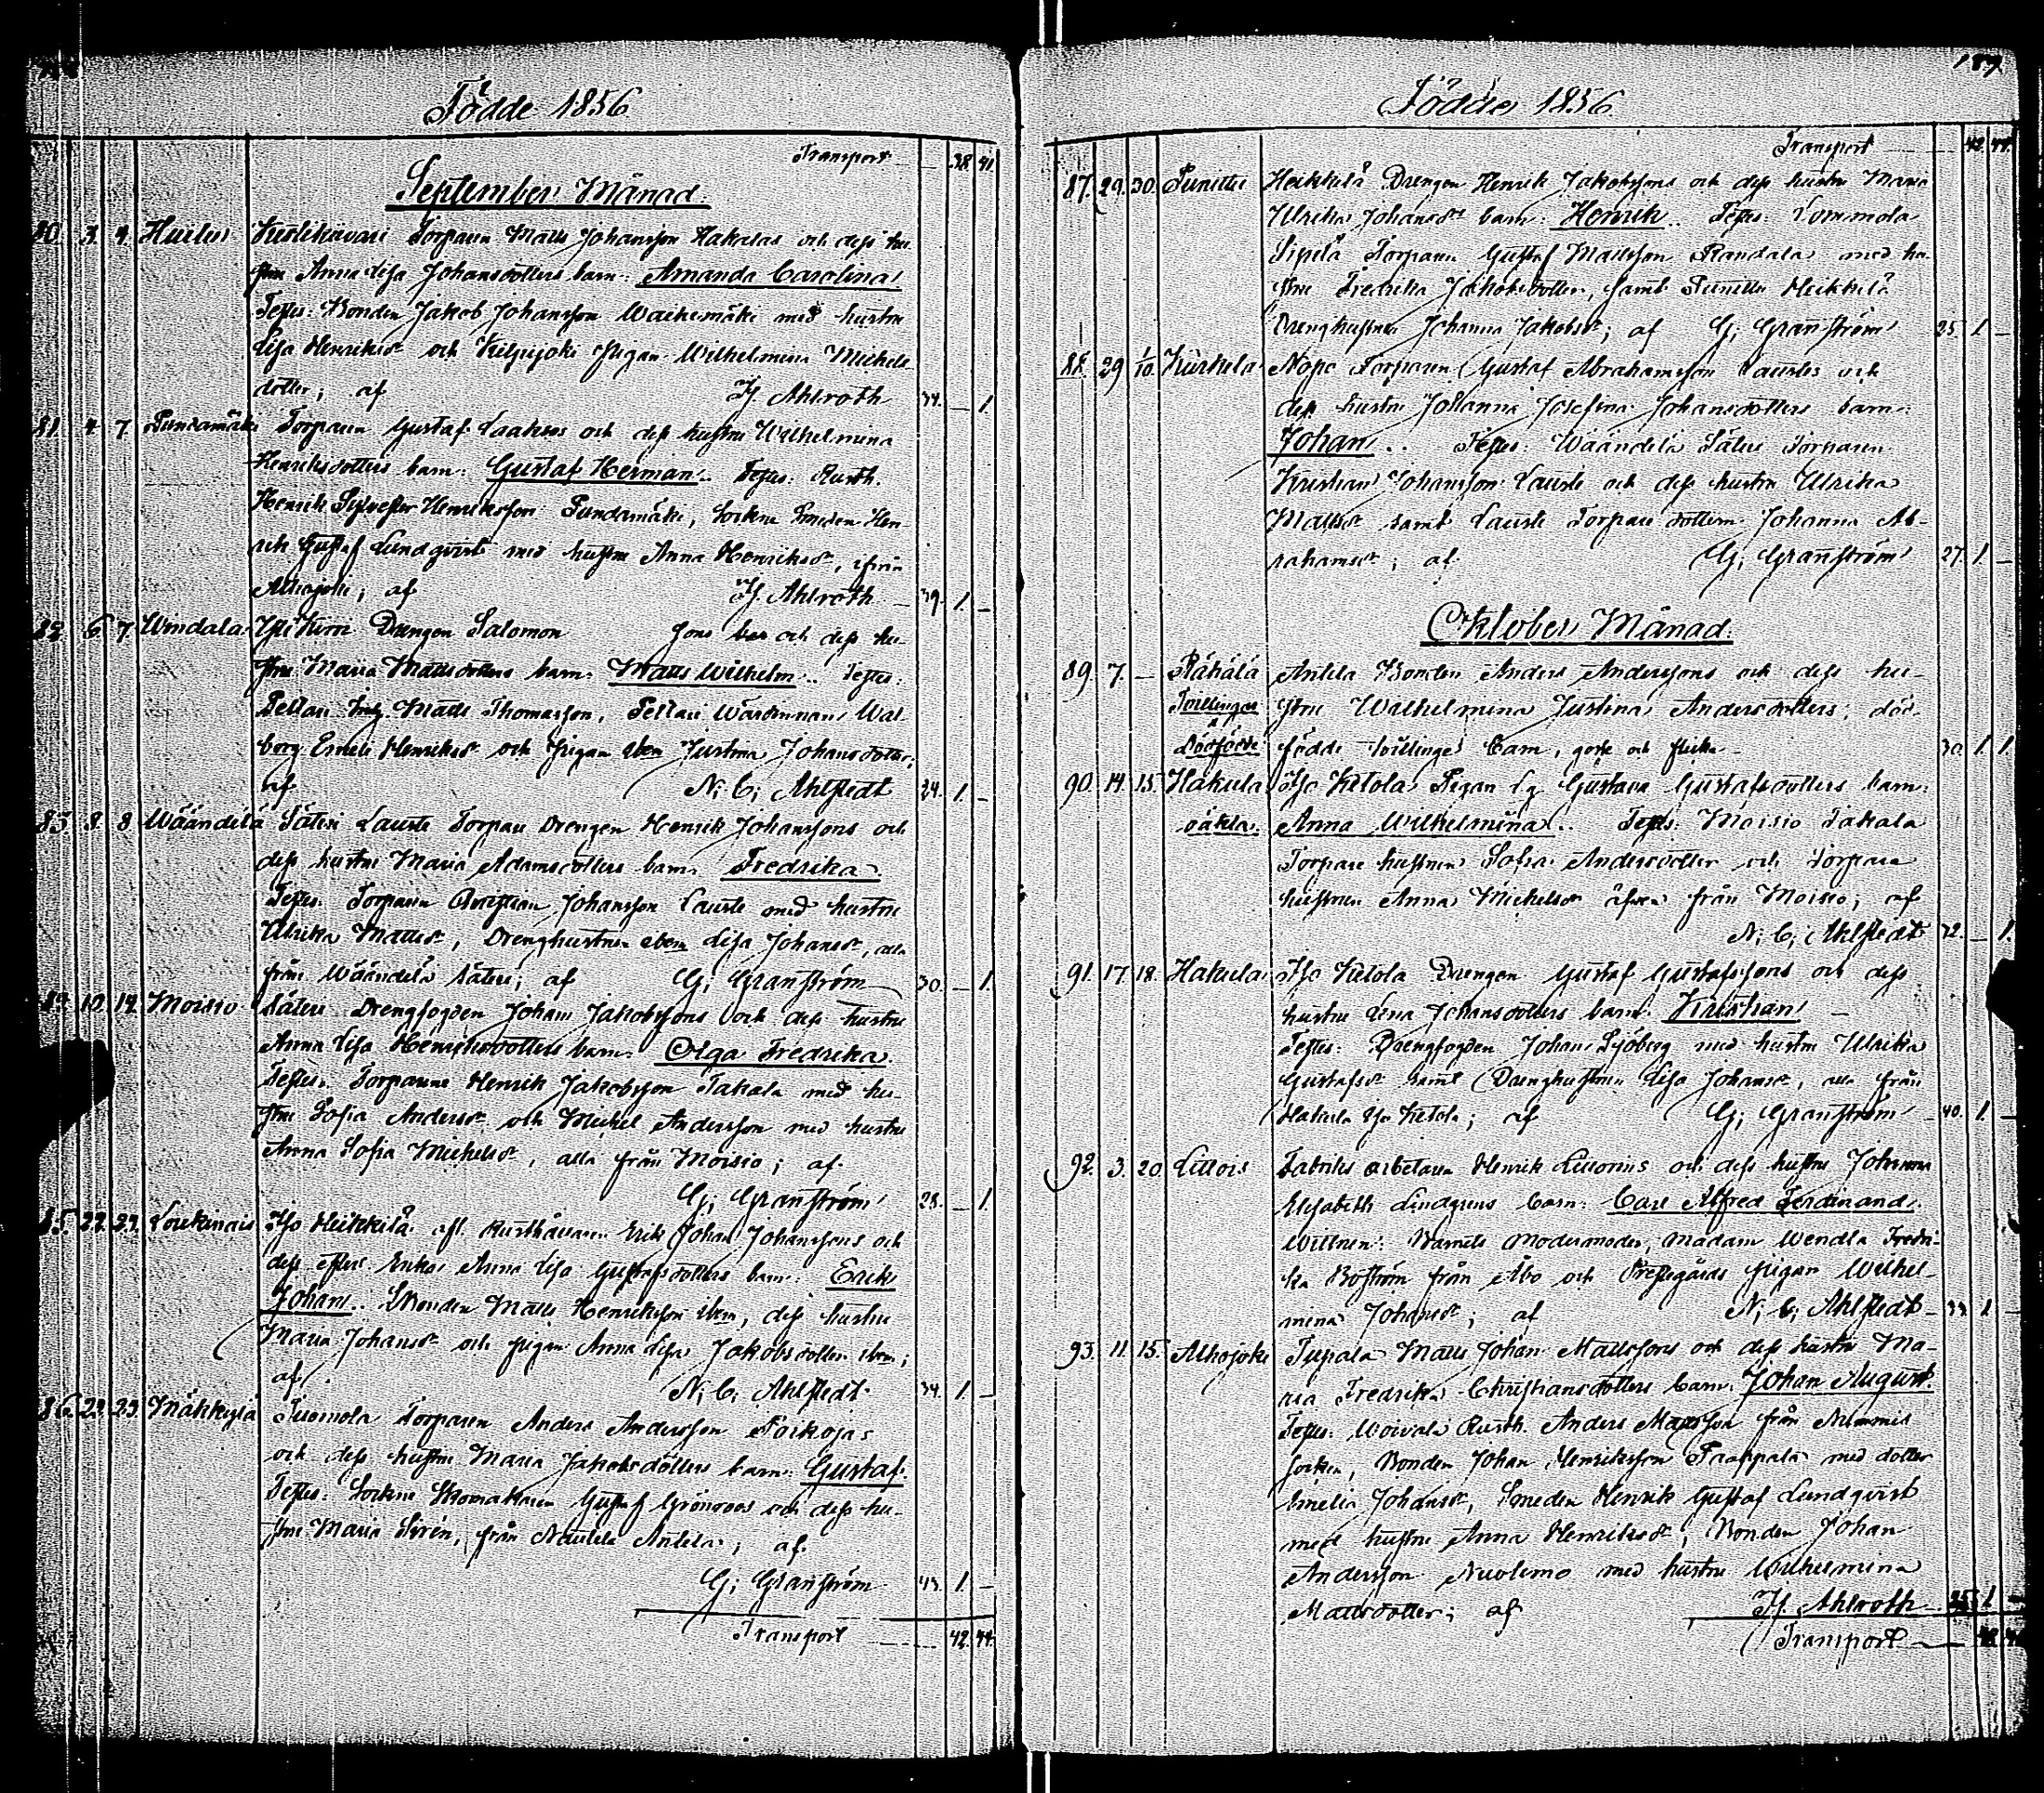 Födde 1856
Transport 38 41
September Månad
80. 3. 4. Huilu Torparen Matts Johansson Hakalas och dess hu-
stru Anna Lisa Johansdotters barn: Amanda Carolina
Testes: Bonden Jakob Johansson med hustru
Lisa Henriksdr och Kilpijoki Pigan Wilhelmina Michels
dotter; af Hj. Ahlroth 34. — 1
81. 4. 7. Pundamäki Torparen Gustaf Laakso och dess hustru Wilhelmina
Henriksdotters barn: Gustaf Herman.. Testes: Rusth.
Henrik Sylvester Henriksson Pundamäki, Sockne Smeden Hen
rik Gustaf Lundqvist med hustru Anna Henriksdr, ifrån
Alhojoki; af Hj. Ahlroth — 39. 1. —
82. 6. 7. Windala Drengen Salomon sons och dess hu-
stru Maria Mattsdotters barn: Matts Wilhelm.. Testes:
Pellari Matts Thomasson, Pellari Wärdinnan Wal-
borg Henriksdr och Pigan ibm Justina Johansdotter;
af N: C: Ahlstedt 24. 1. —
83. 8. 8 Wääntelä Säteri Lauste Torpare Drengen Henrik Johanssons och
dess hustru Maria Adamsdotters barn: Fredrika
Testes: Torparen Christian Johansson Lauste med hustru
Ulrika Mattsdr, Drenghustrun ibm Lisa Johansdr, alla
från Wääntelä Säteri; af G: Granström 30. — 1
84. 10. 14. Moisio Säteri Drengfogden Johan Jakobssons och dess hustru
Anna Lisa Henriksdotters barn: Olga Fredrika
Testes: Torparene Henrik Jakobsson Takala med hu-
stru Sofia Andersdr och Michel Andersson med hustru
Anna Sofia Michelsdr, alla från Moisio; af
G: Granström 28. — 1
85. 22. 23. Loukinais Iso Heikkilä afl. Rusthållaren Erik Johan Johanssons och
dess efterl. Enkas Anna Lisa Gustafsdotters barn: Erik
Johan.. Bonden Matts Henriksson ibm, dess hustru
Maria Johansdr och pigan Anna Lisa Jakobsdotter ibm;
af N: C: Ahlstedt 34. 1 —
86. 23. 23. Mäkkylä Tuomola Torparen Anders Andersson
och dess hustru Maria Jakobsdotters barn: Gustaf.
Testes: Sockne Skomakaren Gustaf Grönroos och dess hu-
stru Maria Sirén, från Nautela Anttila; af
G: Granström 43. 1 —
Transport 42. 44.
187
Födde 1856.
Transport 42 44.
87. 29. 30. Punittu Heikkilä Drengen Henrik Jakobssons och dess hustru Maria
Ulrika Johansdrs barn: Henrik.. Testes: Tommola
Sipilä Torparen Gustaf Mattsson Randala med hu-
stru Fredrika Jakobsdotter, samt Punittu Heikkilä
Drenghustrun Johanna Jakobsdr; af G: Granström 25. 1 —
88. 29 1/10. Kurkela Nopo Torparen Gustaf Abrahamsson Laustes och
dess hustru Johanna Josefina Johansdotters barn:
Johan.. Testes: Wääntelä Säteri Torparen
Kristian Johansson Lauste och dess hustru Ulrika
Mattsdr samt Lauste Torpare dottern Johanna Ab-
rahamsdr; af G: Granström 27. 1 —
Oktober Månad.
89. 7. — Rähälä Anttila Bonden Anders Anderssons och dess hu-
Tvillingar stru Wilhelmina Justina Andersdotters; död-
Dödfödde födde tvillinge barn, gosse och flicka — 30. 1. 1.
90. 14. 15. Hakula Iso Ketola Pigan Gustava Gustafsdotters barn:
oäkta: Anna Wilhelmina.. Testes: Moisio Takala
Torpare hustrun Sofia Andersdotter och Torpare
hustrun Anna Michelsdr äfven från Moisio; af
N: C: Ahlstedt 32. — 1.
91. 17. 18. Hakula Iso Ketola Drengen Gustaf Gustafssons och dess
hustru Lena Johansdotters barn: Kristian —
Testes: Drengfogden Johan Sjöberg med hustru Ulrika
Gustafsdr samt Drenghustrun Lisa Johansdr, alla från
Hakula Iso Ketola; af G: Granström 40. 1 —
92. 3. 20. Littois Fabriks arbetaren Henrik Littonius och dess hustru Johanna
Elisabeth Lindgrens barn: Carl Alfred Ferdinand.
Wittnen: Barnets Modermoder, Madam Wendla Fredri-
ka Boström från Åbo och Prestegårds pigan Wilhel-
mina Johansdr; af N: C: Ahlstedt — 33. 1 —
93. 11. 15. Alhojoki Tupala Matts Johan Mattssons och dess hustru Ma-
ria Fredrika Christiansdotters barn: Johan August.
Testes: Rusth. Anders Mattsson från Nummis
socken, Bonden Johan Henriksson med dotter
Emelia Johansdr, Smeden Henrik Gustaf Lundqvist
med hustru Anna Henriksdr, Bonden Johan
Andersson Nuolemo med hustru Wilhelmina
Mattsdotter; af Hj. Ahlroth 25 1 —
Transport